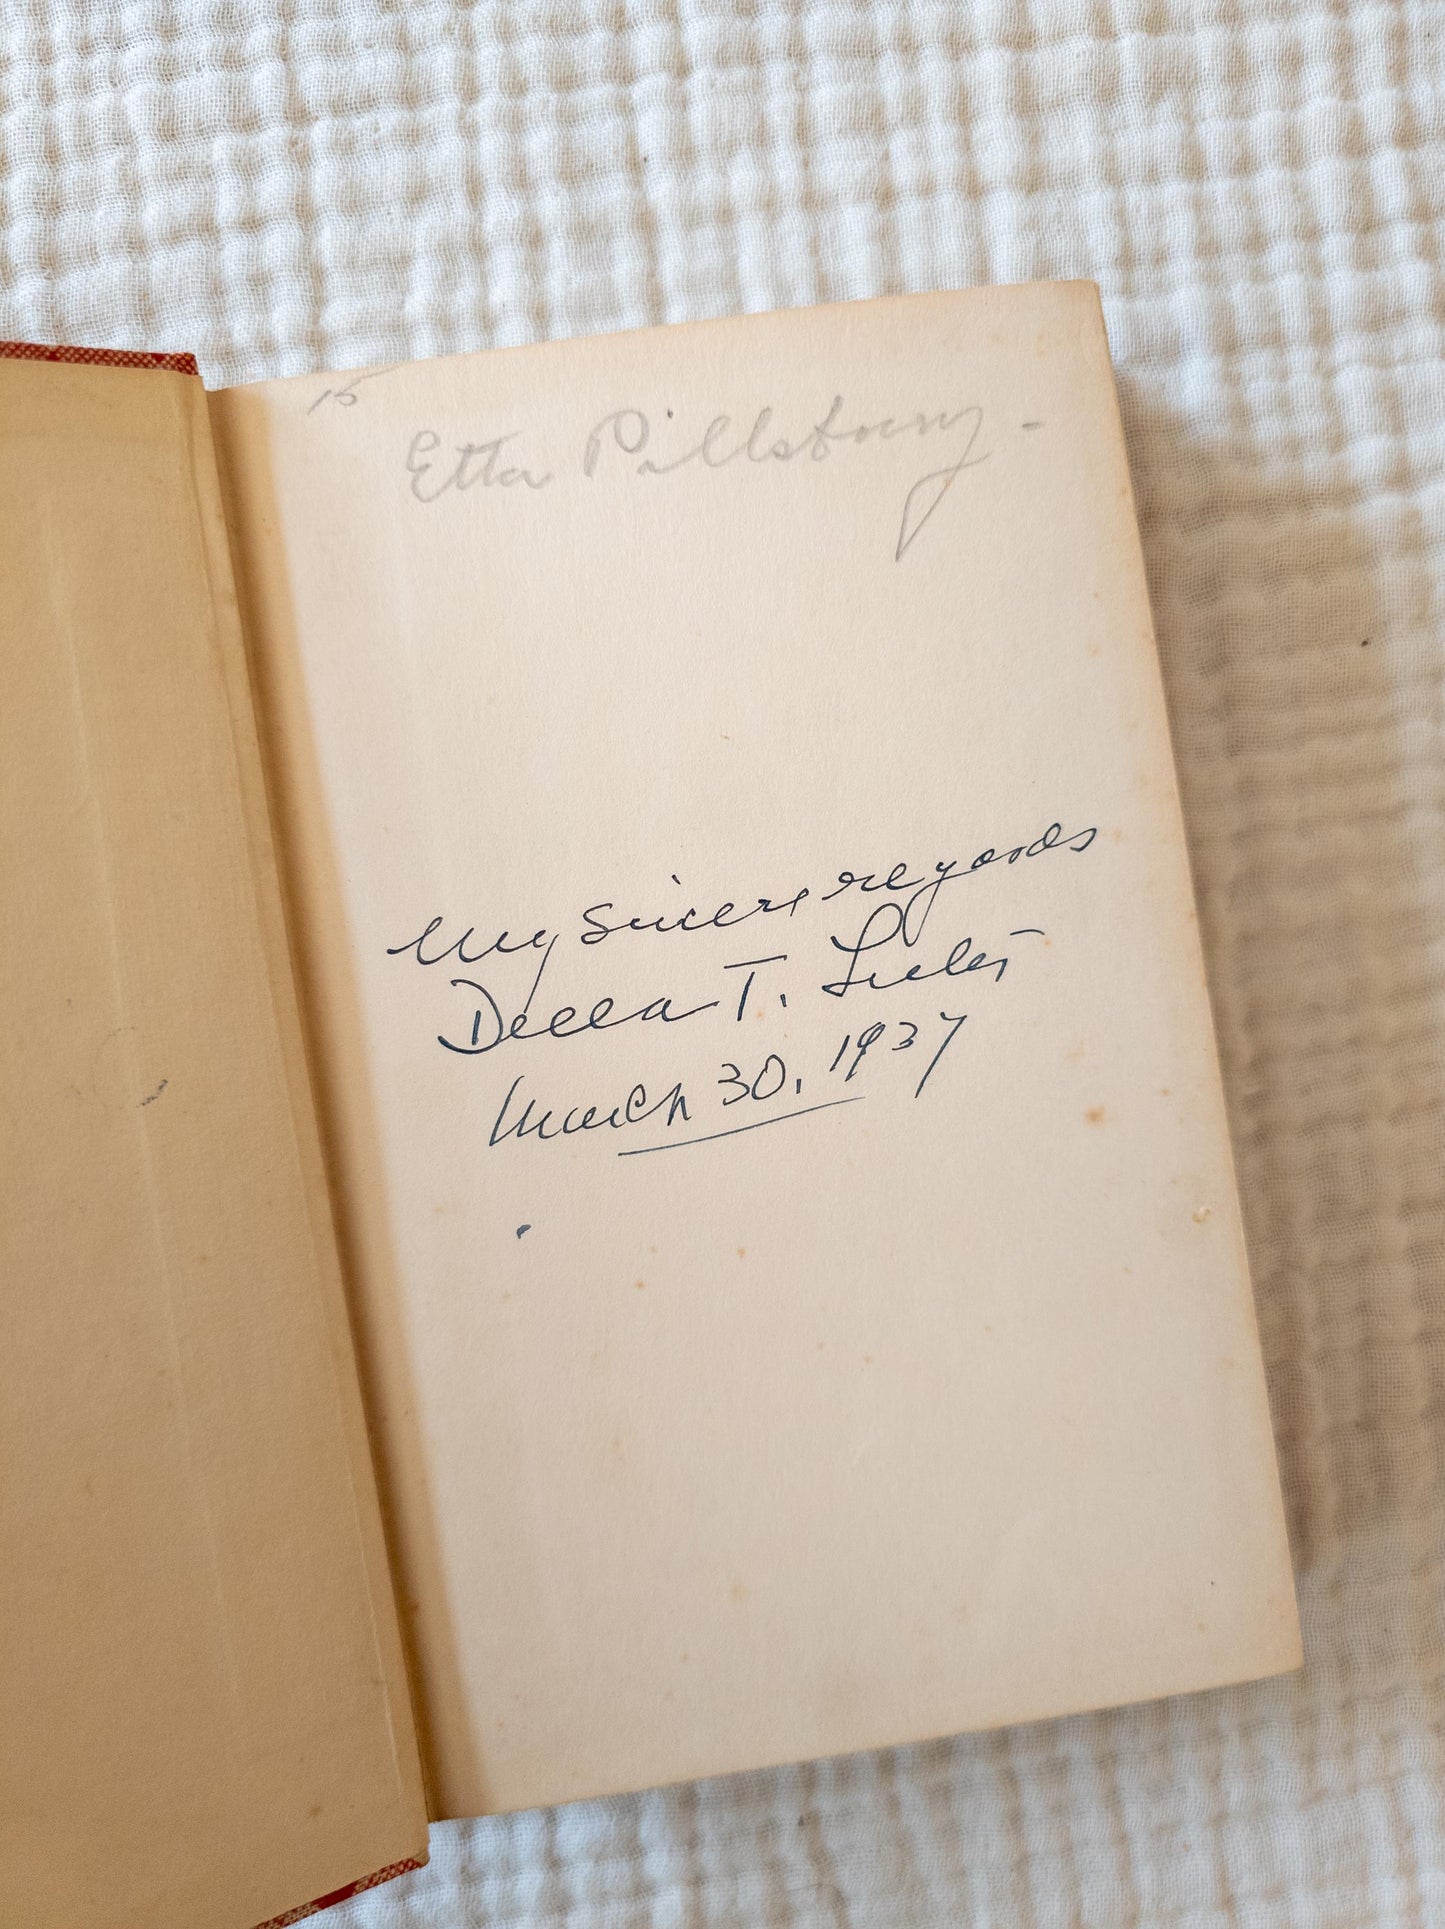 15
Etta Pillsbury -
My sincere regards
Della T. Lutes
March 30, 1937